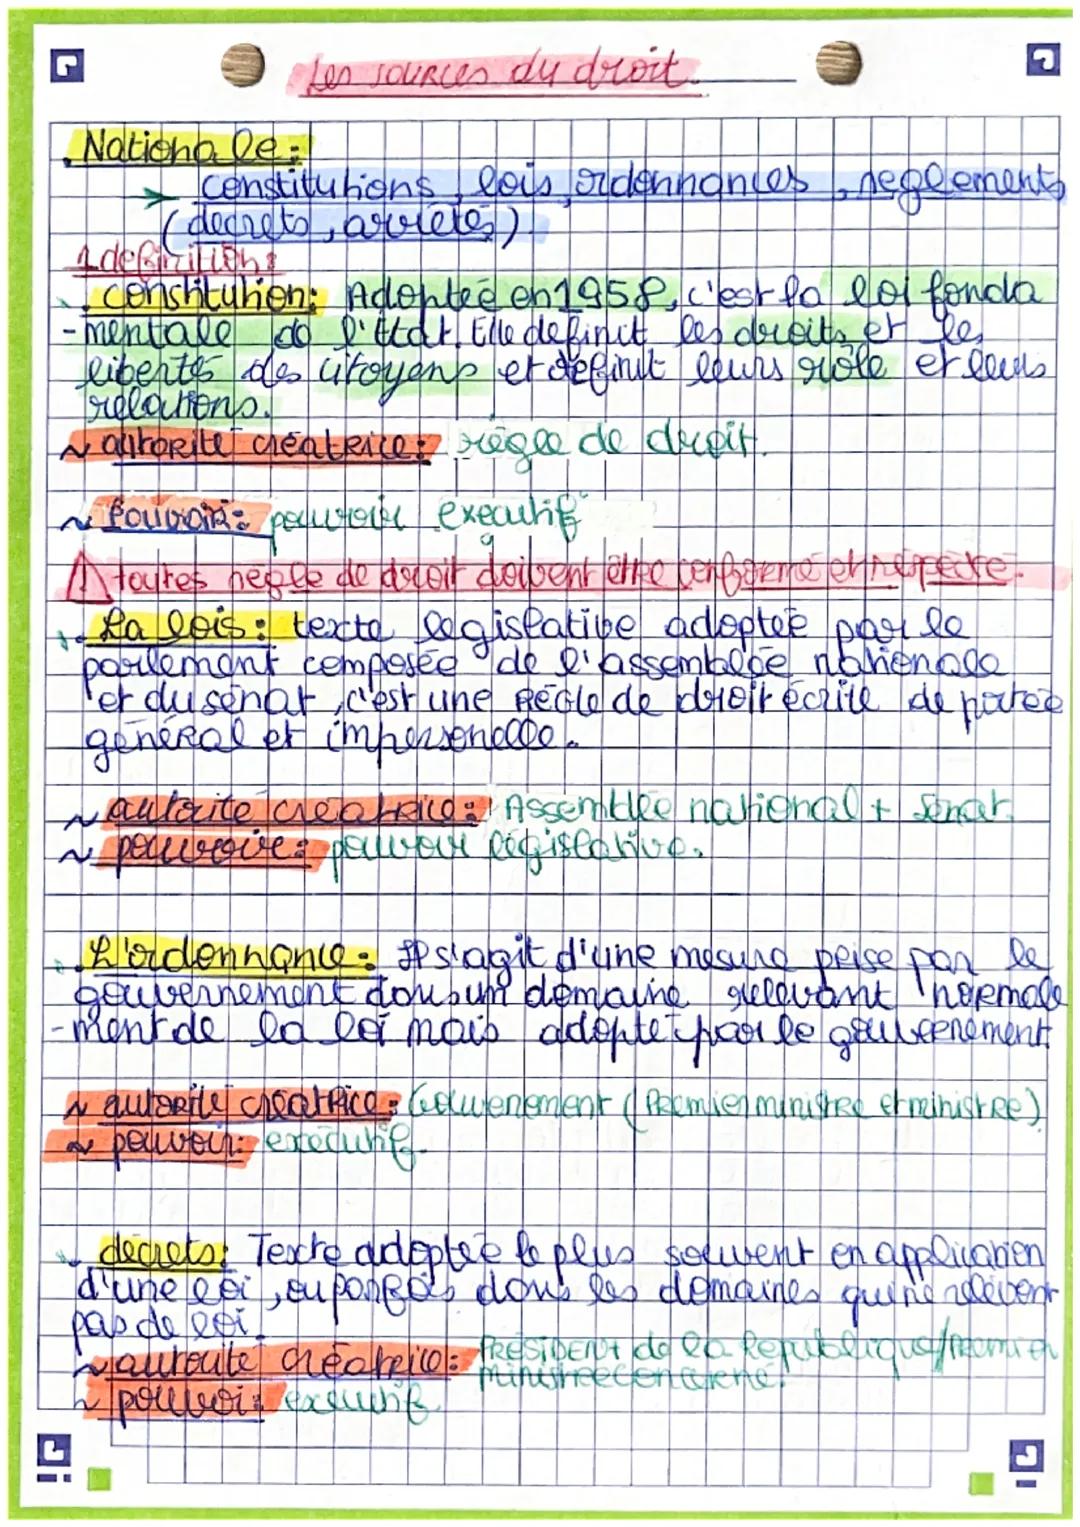 Les sources du droit
Nationale :
→ constitutions, lois, ordonnances, reglements
(decrets, arrêtés).
1 definition :
. constitution : Adoptée en 1958, c'est la loi fonda
-mentale de l'Etat. Elle definit les droits et les
libertés des citoyens et définit leurs rôle et leurs
relations.
~ autorité créatrice : règle de droit.
~ Pouvoir : pouvoir executif
⚠ toutes règle de droit doivent être conforme et respecté.
. La lois : texte legislative adoptée par le
parlement composée de l'assemblée nationale
et du sénat, c'est une Règle de droit écrite de portée
général et impersonelle.
~ autorité créatrice : Assemblée national + Sénat.
~ pouvoir : pouvoir législative.
. L'ordonnance : Il s'agit d'une mesure prise par le
gouvernement dans un domaine relevant normale
-ment de la loi mais adopté par le gouvernement
~ autorité créatrice : Gouvenement (Premier ministre et ministre)
~ pouvoir : executif.
. décrets : Texte adoptée le plus souvent en application
d'une loi, ou parfois dans les domaines qui ne relèvent
pas de loi.
~ autorité créatrice : PRÉSIDENT de la Republique/Premier
ministre concerné.
~ pouvoir : executif